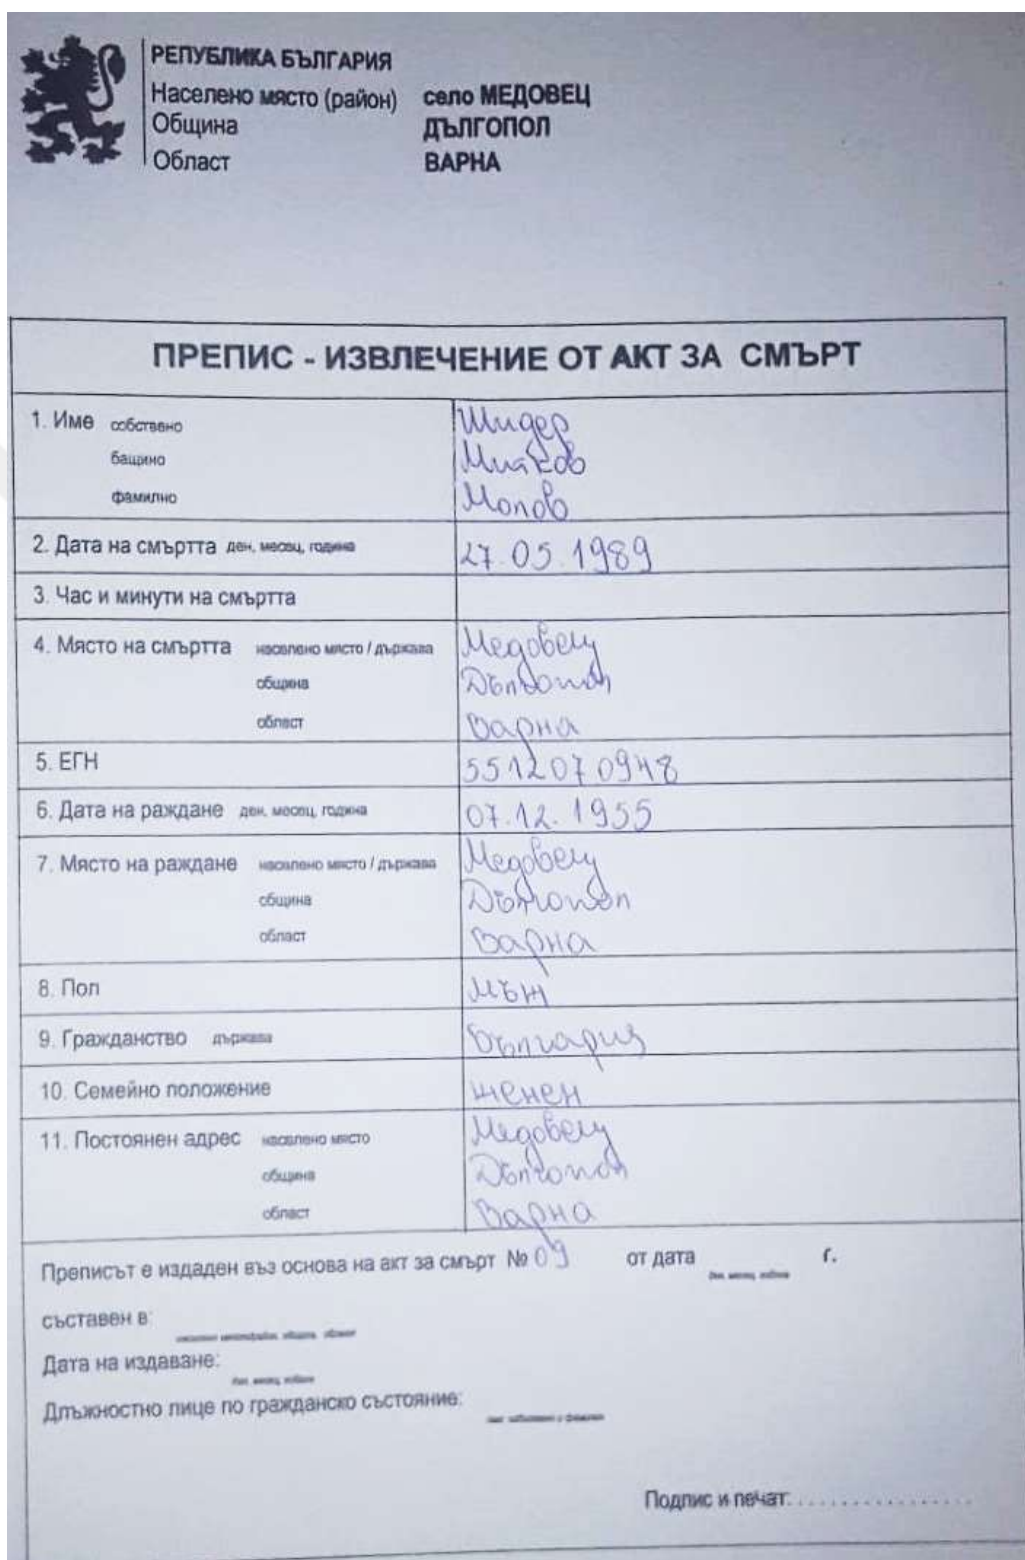 РЕПУБЛИКА БЪЛГАРИЯ
Населено място (район) село МЕДОВЕЦ
Община ДЪЛГОПОЛ
Област ВАРНА
ПРЕПИС - ИЗВЛЕЧЕНИЕ ОТ АКТ ЗА СМЪРТ
1. Име собствено Шидер
бащино Митков
фамилно Мопов
2. Дата на смъртта ден, месец, година 27.05.1989
3. Час и минути на смъртта
4. Място на смъртта населено място / държава Медовец
община Дългопол
област Варна
5. ЕГН 5512070948
6. Дата на раждане ден, месец, година 07.12.1955
7. Място на раждане населено място / държава Медовец
община Дългопол
област Варна
8. Пол мъж
9. Гражданство държава България
10. Семейно положение женен
11. Постоянен адрес населено място Медовец
община Дългопол
област Варна
Преписът е издаден въз основа на акт за смърт № 09 от дата г.
ден, месец, година
съставен в:
Дата на издаване:
ден, месец, година
Длъжностно лице по гражданско състояние:
Подпис и печат:..................